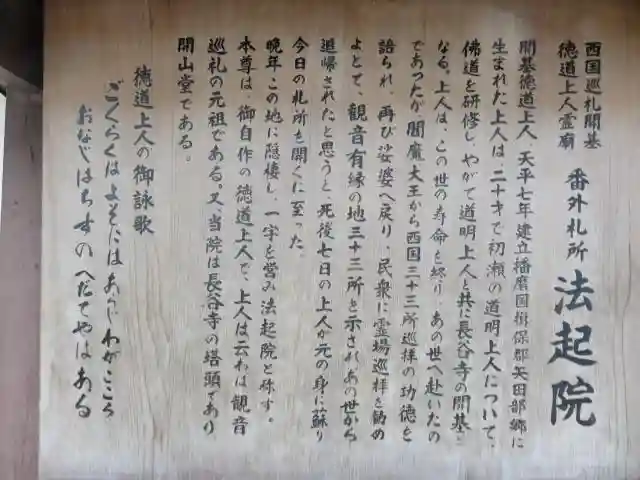 西国巡礼開基
徳道上人霊廟
番外札所 法起院
開基徳道上人、天平七年建立播磨国揖保郡矢田部郷に
生まれた上人は、二十才で初瀬の道明上人について、
佛道を研修し、やがて道明上人と共に長谷寺の開基と
なる。上人は、この世の寿命を終り、あの世へ赴いたの
であったが閻魔大王から西国三十三所巡拝の功徳を
語られ、再び娑婆へ戻り、民衆に霊場巡拝を勧め
よとて、観音有縁の地三十三所を示されあの世から
追帰されたと思うと、死後七日の上人が元の身に蘇り
今日の札所を開くに至った。
晩年この地に隠棲し、一宇を営み法起院と称す。
本尊は、御自作の徳道上人で、上人は云わば観音
巡礼の元祖である。又、当院は長谷寺の塔頭であり、
開山堂である。
徳道上人の御詠歌
ごくらくはよそにはあらじわがこころ
おなじはちすのへだてやはある